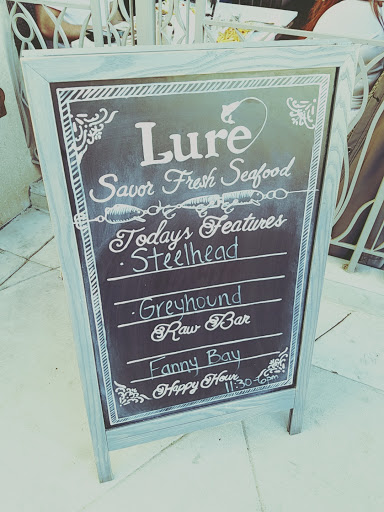 Lure
Savor Fresh Seafood
Todays Features
· Steelhead
· Greyhound
Raw Bar
Fanny Bay
Happy Hour 11:30-6pm